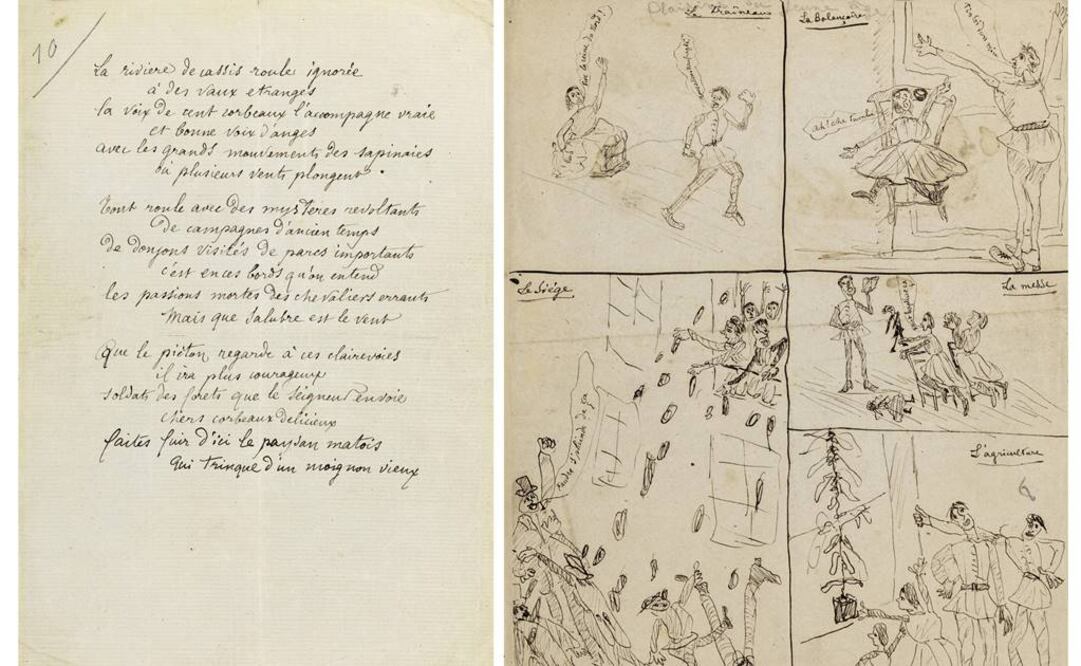 10
La rivière de cassis roule ignorée
à des vaux etranges
la voix de cent corbeaux l'accompagne vraie
et bonne voix d'anges
avec les grands mouvements des sapinaies
où plusieurs vents plongent.
Tout roule avec des mystères revoltants
De campagnes d'ancien temps
De donjons visités de parcs importants
c'est en ces bords qu'on entend
les passions mortes des chevaliers errants
Mais que salubre est le vent
Que le piéton regarde à ces clairevoies
il ira plus courageux
soldats des forets que le seigneur envoie
chers corbeaux delicieux
faites fuir d'ici le paysan matois
qui trinque d'un moignon vieux
Le Traîneau
La Balançoire
ah! che tombe
Le Siége
La messe
L'agriculture